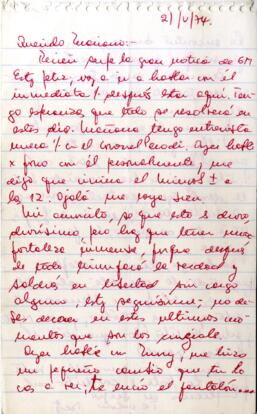 21/V/74.
Querido Mariano:-
Recién supe la gran noticia de GM.
Estoy feliz, voy a ir a hablar con él
inmediata/ después estar aquí. Ten-
go esperanza que todo se resolverá en
estos días. Mañana tengo entrevista
nueva c/ el Coronel Ayer hablé
x fono con él personalmente, me
dijo que viniera el Miércoles ±
a la 12. Ojalá me vaya bien.
Mi amorcito, sé que esto es duro,
durísimo pero hay que tener mucha
fortaleza inmensa porque después
de todo triunfará la verdad y
saldrás en libertad sin cargo
alguno, estoy segurísima; no de-
bes decaer en estos últimos mo-
mentos que son los cruciales.
Ayer hablé con me hizo
un pequeño cambio que tú lo
vas a ver; te envío el pantalón...